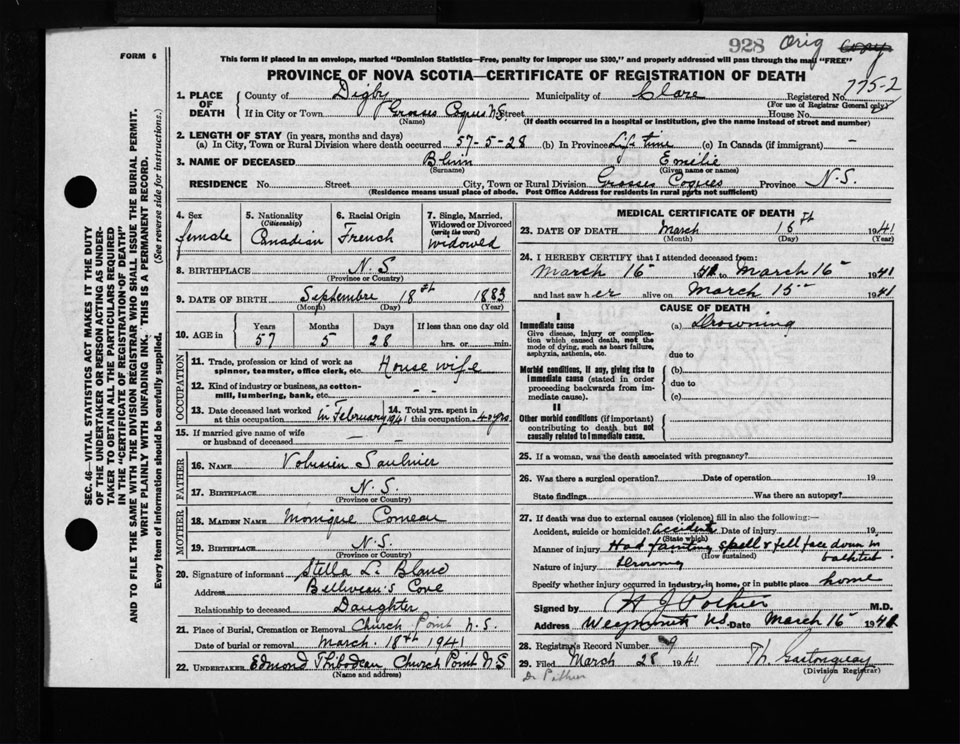 928 Orig Copy
FORM 6
This form if placed in an envelope, marked "Dominion Statistics—Free, penalty for improper use $300," and properly addressed will pass through the mail "FREE"
PROVINCE OF NOVA SCOTIA—CERTIFICATE OF REGISTRATION OF DEATH
775-2
1. PLACE OF DEATH
County of Digby Municipality of Clare Registered No.
(For use of Registrar General only)
If in City or Town Grosses Coques N.S. House No.
(Name) (If death occurred in a hospital or institution, give the name instead of street and number)
2. LENGTH OF STAY (in years, months and days)
(a) In City, Town or Rural Division where death occurred 57-5-28 (b) In Province Life time (c) In Canada (if immigrant) —
3. NAME OF DECEASED Blinn Emélie
(Surname) (Given name or names)
RESIDENCE No. Street City, Town or Rural Division Grosses Coques Province N.S.
(Residence means usual place of abode. Post Office Address for residents in rural parts not sufficient)
4. Sex female
5. Nationality (Citizenship) Canadian
6. Racial Origin French
7. Single, Married, Widowed or Divorced (write the word) widowed
8. BIRTHPLACE N.S.
(Province or Country)
9. DATE OF BIRTH Septembre 18th 1883
(Month) (Day) (Year)
10. AGE in Years Months Days If less than one day old
57 5 28 hrs. or min.
OCCUPATION
11. Trade, profession or kind of work as spinner, teamster, office clerk, etc. House wife
12. Kind of industry or business, as cotton-mill, lumbering, bank, etc. — -
13. Date deceased last worked at this occupation in February 1941
14. Total yrs. spent in this occupation 40 yrs.
15. If married give name of wife or husband of deceased — -
FATHER
16. NAME Saulnier
17. BIRTHPLACE N.S.
(Province or Country)
MOTHER
18. MAIDEN NAME Monique Comeau
19. BIRTHPLACE N.S.
(Province or Country)
20. Signature of informant Stella L. Blanc
Address Belliveau's Cove
Relationship to deceased Daughter
21. Place of Burial, Cremation or Removal Church Point N.S.
Date of burial or removal March 18th 1941
22. UNDERTAKER Edmond Thibodeau, Church Point N S
(Name and address)
MEDICAL CERTIFICATE OF DEATH
23. DATE OF DEATH March 15th 1941
(Month) (Day) (Year)
24. I HEREBY CERTIFY that I attended deceased from:
March 15 1941 to March 15 1941
and last saw her alive on March 15 1941
CAUSE OF DEATH
I
Immediate cause (a) Drowning
Give disease, injury or complication which caused death, not the mode of dying, such as heart failure, asphyxia, asthenia, etc.
due to
Morbid conditions, if any, giving rise to immediate cause (stated in order proceeding backwards from immediate cause).
(b)
due to
(c)
II
Other morbid conditions (if important) contributing to death but not causally related to immediate cause.
25. If a woman, was the death associated with pregnancy?
26. Was there a surgical operation? Date of operation 19
State findings Was there an autopsy?
27. If death was due to external causes (violence) fill in also the following:—
Accident, suicide or homicide? accident Date of injury 19
(State which)
Manner of injury Had fainting spell & fell face down in bathtub
(How sustained)
Nature of injury Drowning
Specify whether injury occurred in industry, in home, or in public place home
Signed by H J Pothier M.D.
Address Weymouth N.S. Date March 15 1941
28. Registrar's Record Number 9
29. Filed March 28 1941
(Division Registrar)
Dr Pothier
SEC. 46—VITAL STATISTICS ACT MAKES IT THE DUTY
OF THE UNDERTAKER OR PERSON ACTING AS UNDER-
TAKER TO OBTAIN ALL THE PARTICULARS REQUIRED
IN THE "CERTIFICATE OF REGISTRATION OF DEATH"
AND TO FILE THE SAME WITH THE DIVISION REGISTRAR WHO SHALL ISSUE THE BURIAL PERMIT.
WRITE PLAINLY WITH UNFADING INK. THIS IS A PERMANENT RECORD.
Every item of information should be carefully supplied. (See reverse side for instructions.)